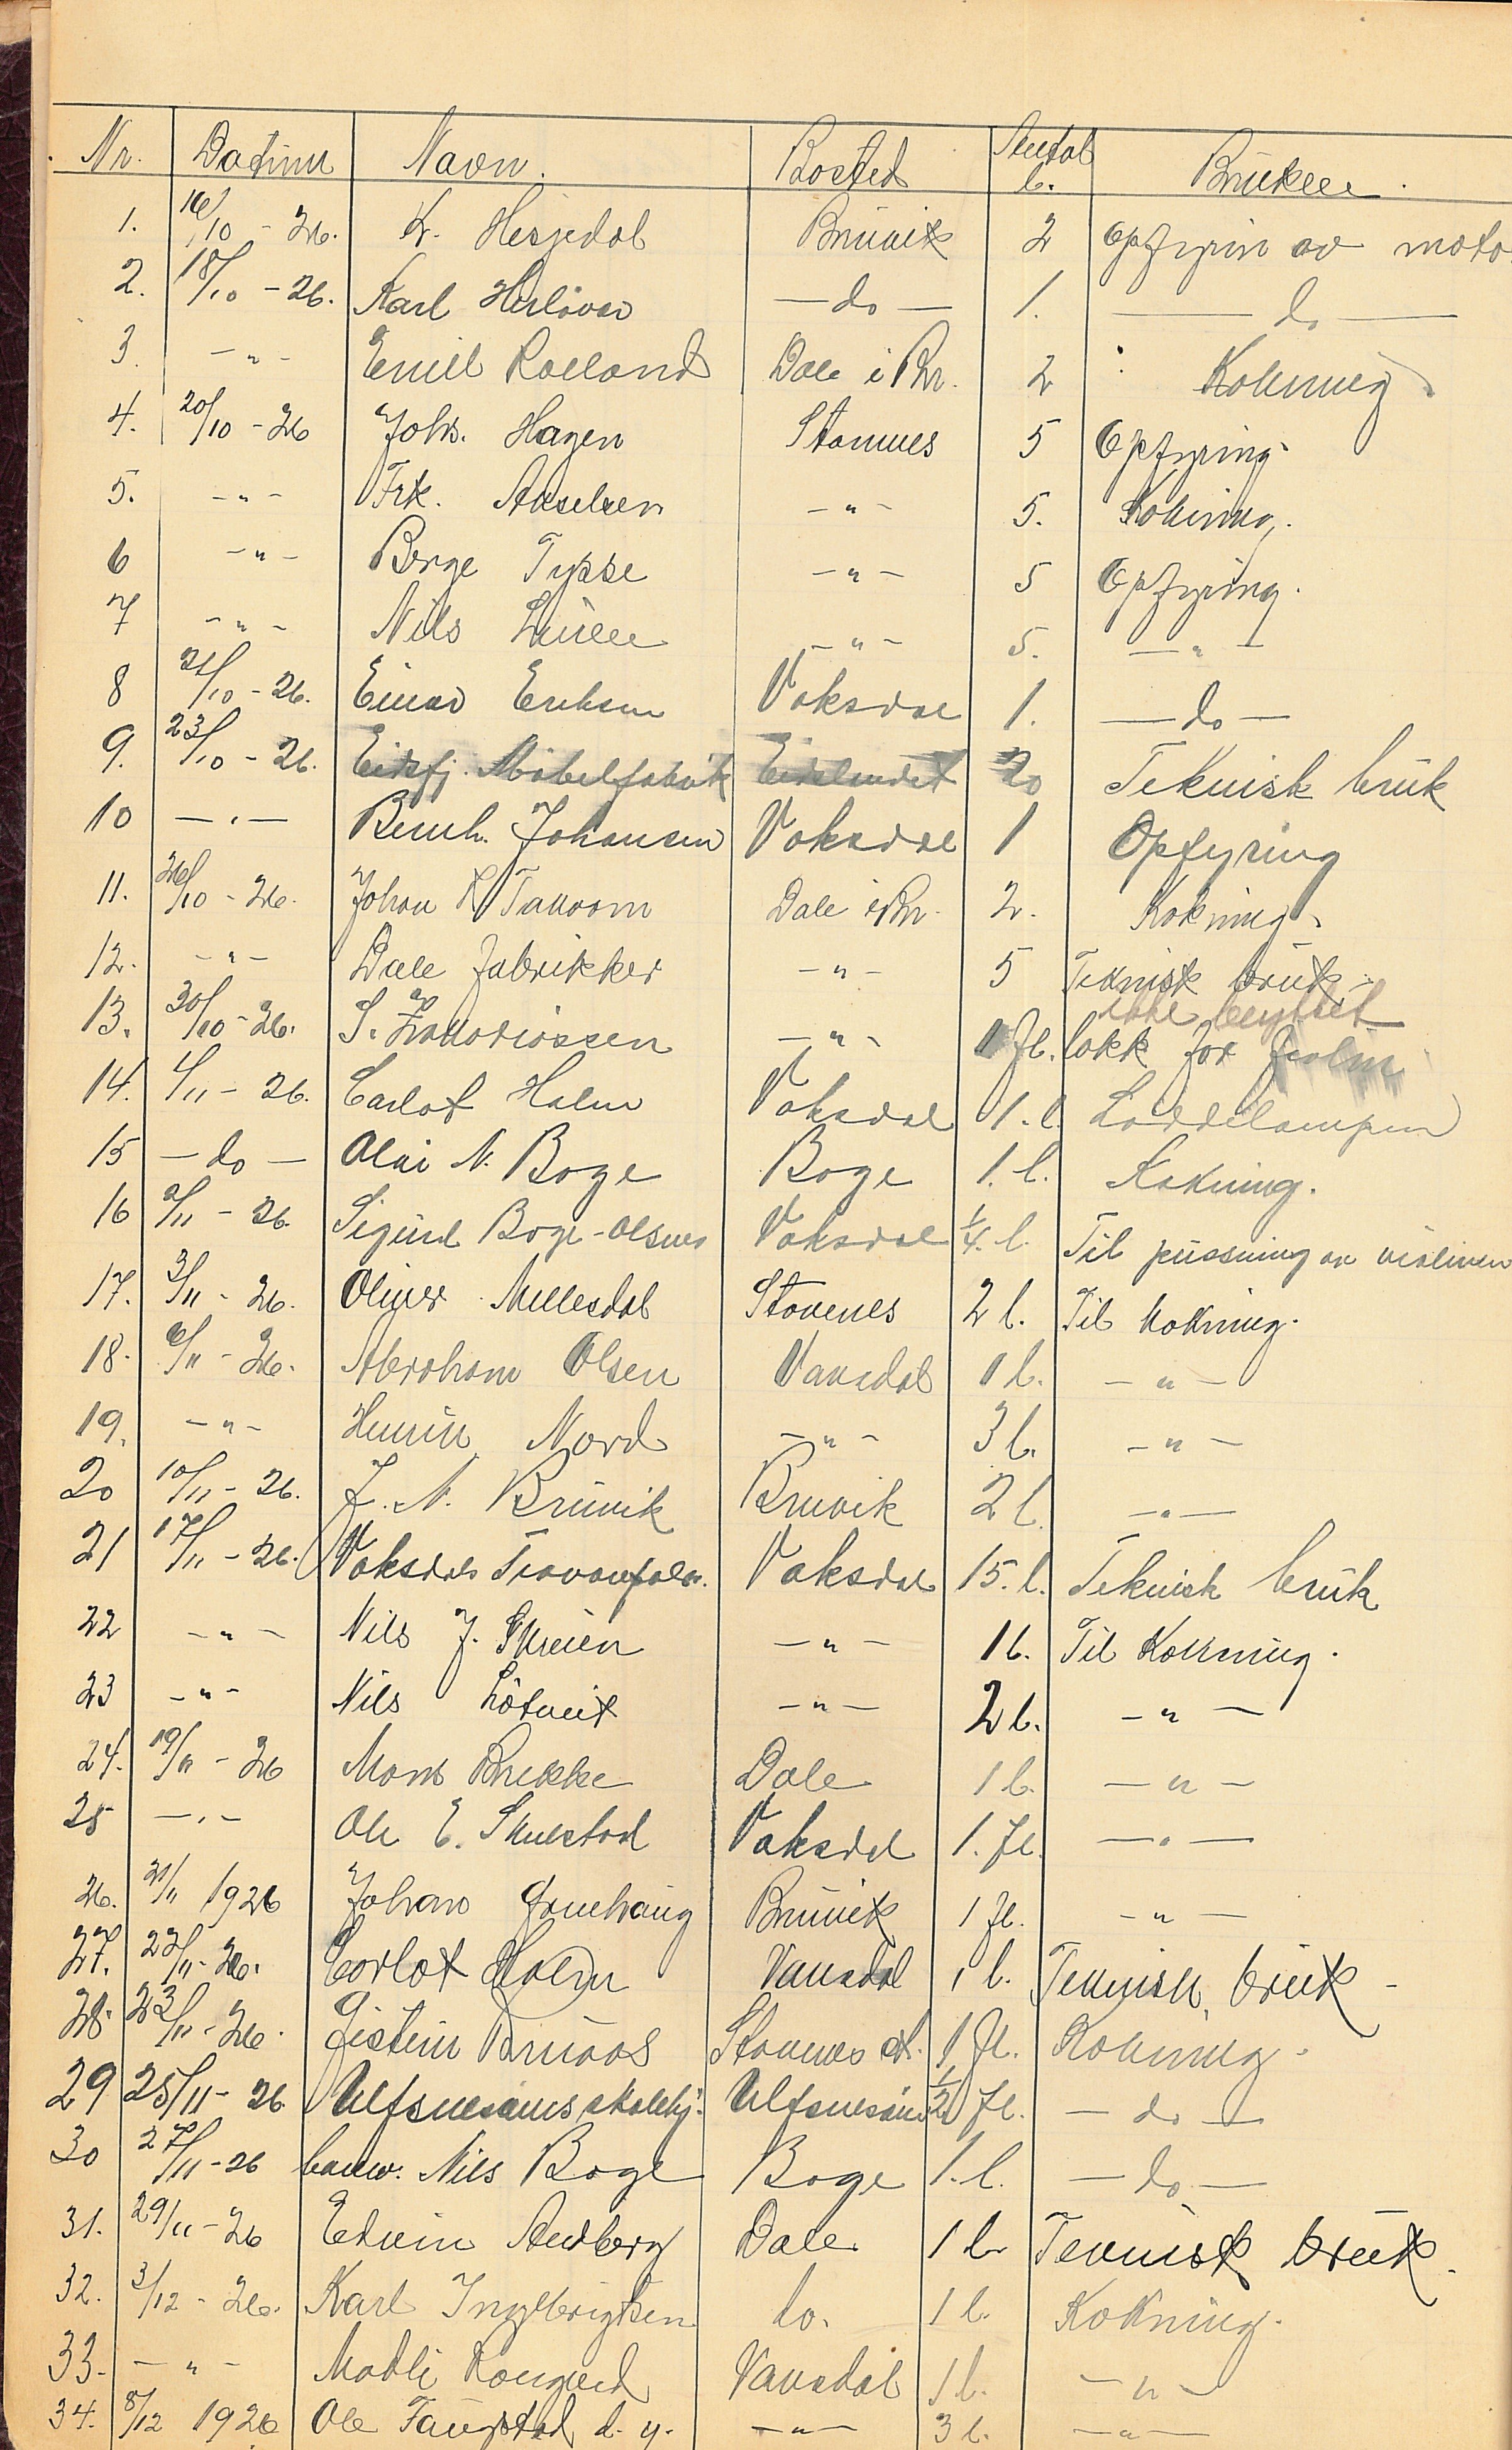 Nr. Datum Navn. Bosted Antal l. Bruken.
1. 16/10 - 26. K. Hesjedal Bruvik 2 Opfyrin av moto
2. 18/10 - 26. Karl — do — 1. — do —
3. — " — Emil Dale i Br. 2 Kokning
4. 20/10 - 26 Johs. Hagen Stamnes 5 Opfyring
5. — " — Frk. Akselsen — " — 5. Kokning.
6 — " — Berge Tysse — " — 5 Opfyring.
7 — " — Nils — " — 5. — " —
8 21/10 - 26. Einar Eriksen Vaksdal 1. — do —
9. 23/10 - 26. Eidsfj. Møbelfabrik Eidslandet 20 Teknisk brŭk
10 — " — Bernh. Johansen Vaksdal 1 Opfyring
11. 26/10 - 26. Johan Dale i Br. 2. Kokning.
12. — " — Dale Fabrikker — " — 5 Teknisk brŭk
13. 30/10 - 26. S. Zakariassen — " — 1 fl. lokk for
14. 1/11 - 26. Carlot Holm Vaksdal 1. l. Loddelampen
15 — do — Olai N. Boge Boge 1. l. Kokning.
16 2/11 - 26. Sigurd Boge - Olsnes Vaksdal 1/4. l. Til pŭssning av violinen
17. 3/11 - 26. Oliver Millesdal Stamnes 2 l. Til kokning.
18. 6/11 - 26. Abraham Olsen Vaksdal 1 l. — " —
19. — " — Nord — " — 3 l. — " —
20 10/11 - 26. J. N. Brŭvik Bruvik 2 l. — " —
21 17/11 - 26. Vaksdal 15. l. Teknisk brŭk
22 — " — Nils J. Skreien — " — 1 l. Til Kokning.
23 — " — Nils Løtveit — " — 2 l. — " —
24. 19/11 - 26 Mons Brekke Dale 1 l. — " —
25 — " — Ole E. Skulstad Vaksdal 1. fl. — " —
26. 21/11 1926 Johan Brŭvik 1 fl. — " —
27. 22/11 - 26. Carlot Holm Vaksdal 1 l. Teknisk brŭk
28. 23/11 - 26. Gistein Brŭaas Stamnes st. 1 fl. Kokning.
29 25/11 - 26 Ulfsnesøens skolehj. Ulfsnesøen 1/2 fl. — do —
30 27/11 - 26 Nils Boge Boge 1. l. — do —
31. 29/11 - 26 Edvin Dale 1 l. Teknisk brŭk.
32. 3/12 - 26. Karl Ingebrigtsen do. 1 l. Kokning.
33. — " — Vaksdal 1 l. — " —
34. 8/12 1926 Ole Faŭgstad d. y. — " — 3 l. — " —